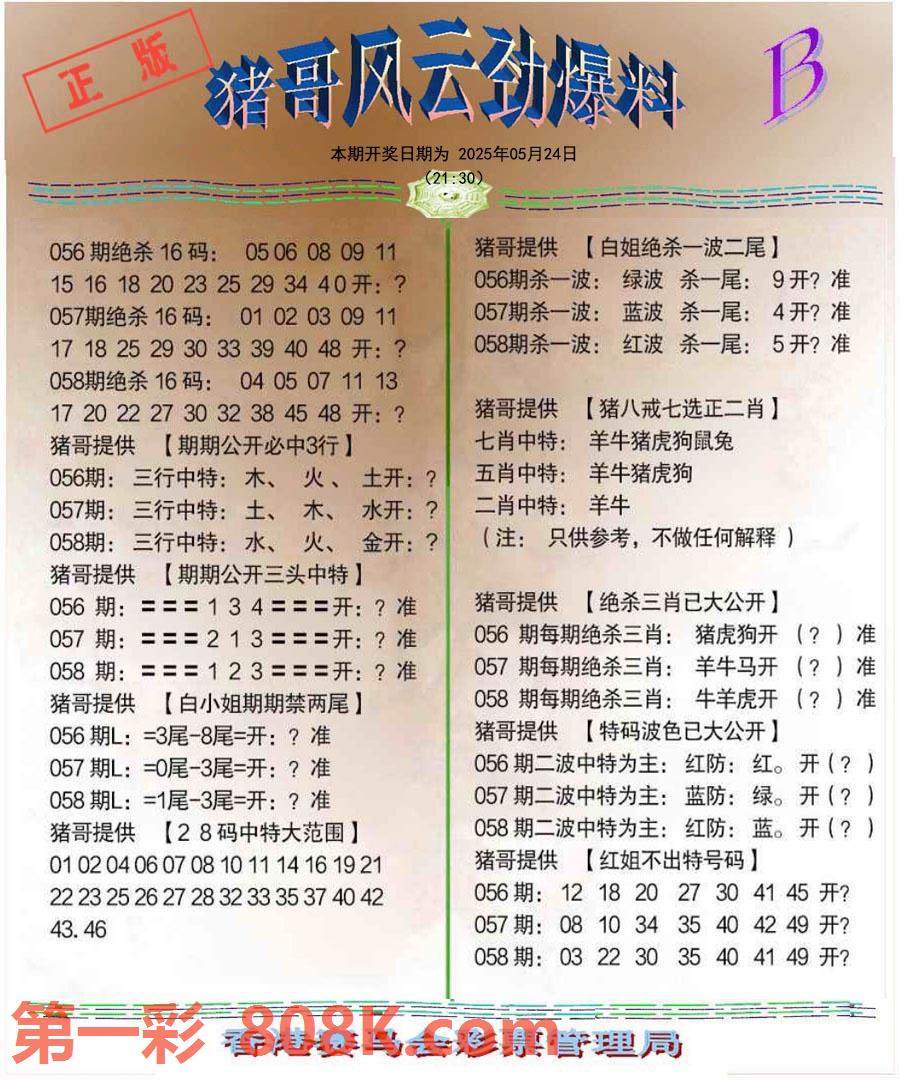 正版
猪哥风云劲爆料
B
本期开奖日期为 2025年05月24日
(21:30)
056期绝杀16码： 05 06 08 09 11
15 16 18 20 23 25 29 34 40开：?
057期绝杀16码： 01 02 03 09 11
17 18 25 29 30 33 39 40 48 开：?
058期绝杀16码： 04 05 07 11 13
17 20 22 27 30 32 38 45 48 开：?
猪哥提供 【期期公开必中3行】
056期：三行中特：木、 火、 土开：?
057期：三行中特：土、 木、 水开：?
058期：三行中特：水、 火、 金开：?
猪哥提供 【期期公开三头中特】
056 期：=== 1 3 4 ===开：? 准
057 期：=== 2 1 3 ===开：? 准
058 期：=== 1 2 3 ===开：? 准
猪哥提供 【白小姐期期禁两尾】
056期L：=3尾-8尾=开：? 准
057期L：=0尾-3尾=开：? 准
058期L：=1尾-3尾=开：? 准
猪哥提供 【28码中特大范围】
01 02 04 06 07 08 10 11 14 16 19 21
22 23 25 26 27 28 32 33 35 37 40 42
43.46
猪哥提供 【白姐绝杀一波二尾】
056期杀一波： 绿波 杀一尾： 9开? 准
057期杀一波： 蓝波 杀一尾： 4开? 准
058期杀一波： 红波 杀一尾： 5开? 准
猪哥提供 【猪八戒七选正二肖】
七肖中特： 羊牛猪虎狗鼠兔
五肖中特： 羊牛猪虎狗
二肖中特： 羊牛
（注： 只供参考，不做任何解释）
猪哥提供 【绝杀三肖已大公开】
056 期每期绝杀三肖： 猪虎狗开 （?）准
057 期每期绝杀三肖： 羊牛马开 （?）准
058 期每期绝杀三肖： 牛羊虎开 （?）准
猪哥提供 【特码波色已大公开】
056期二波中特为主：红防：红。开(?)
057期二波中特为主：蓝防：绿。开(?)
058期二波中特为主：红防：蓝。开(?)
猪哥提供 【红姐不出特号码】
056期： 12 18 20 27 30 41 45 开?
057期： 08 10 34 35 40 42 49 开?
058期： 03 22 30 35 40 41 49 开?
第一彩 808K.com
香港赛马会彩票管理局